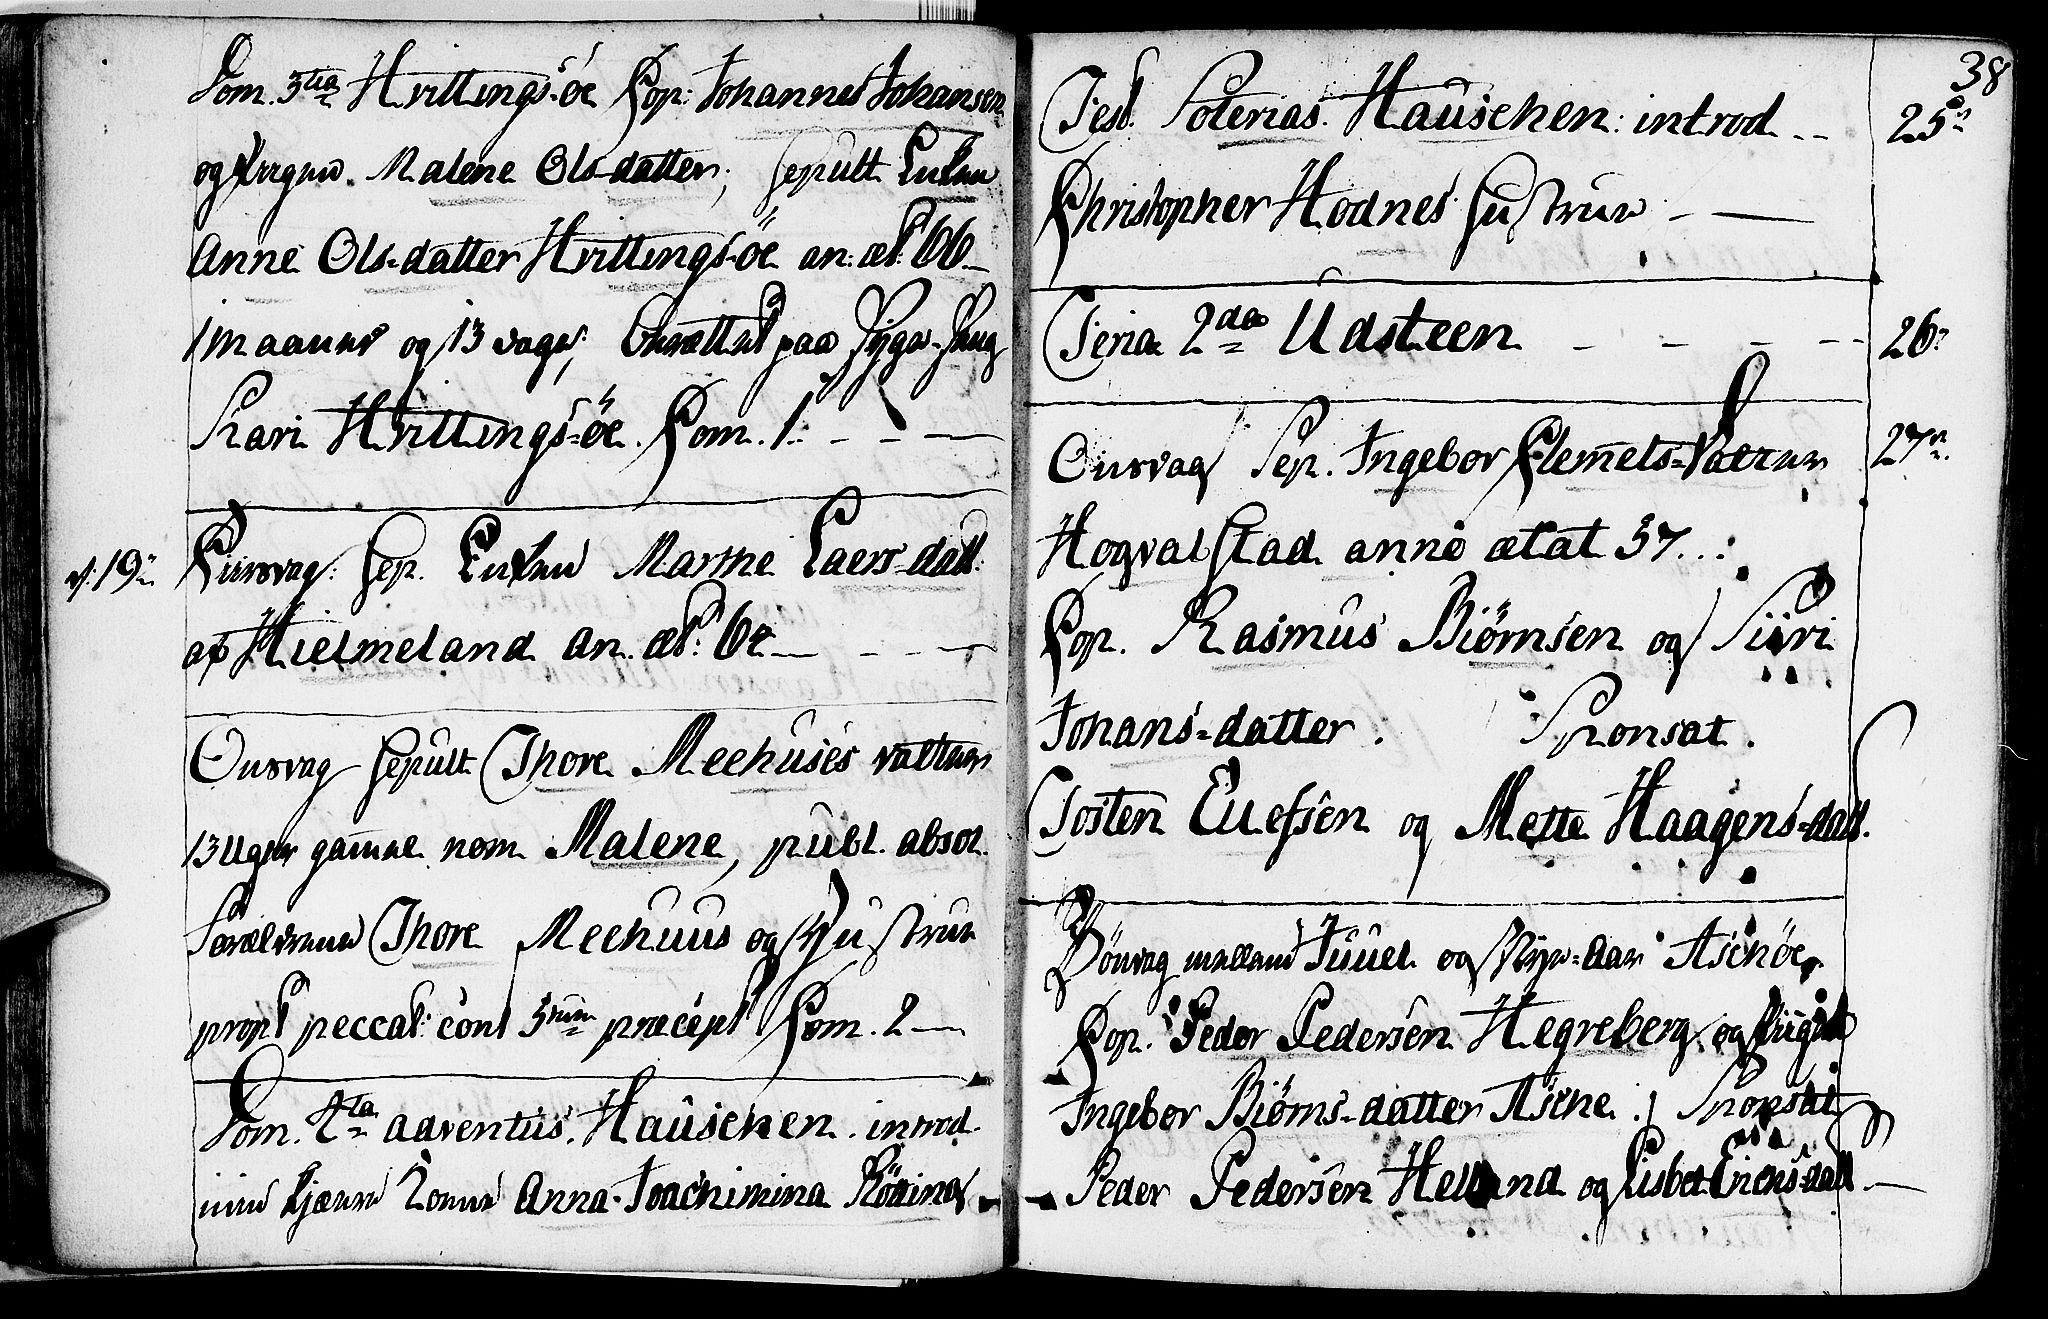 Dom. 3tia Hvittings-öe Cop: Johannes Johansen
og Malene Ols-datter; Sepult Enken
Anne Ols-datter Hvittings-öe an: æt: 66
1 maaner og 13 dage; Berættet paa Syge-Seng
Kari Hvittings-öe. Com. 1.
d: 19. Tiirsdag: Sep. Enken Marthe Laers-datt:
af Hielmeland an. æt:
Onsdag Sepult Thore Meehuses datter
13 Uger gammel nom. Malene, publ. absol.
Forældrene Thore Meehuus og Hustrue
propt peccat: cont præcept Com. 2
Dom. 4ta adventus. Hauschen. introd.
min kjære Kone Anna-Joachimina
38
Fest. Soterias. Hauschen: introd 25.
Christopher Hodnes Hustrue
Feria 2da Udsteen 26.
Onsdag Sep. Ingebor Clemets-Datter 27.
Hogvalstad anno ætat 37
Cop. Rasmus Biörnsen og Siiri
Johans-datter. Sponsat.
Tosten Eliefsen og Mette Haagens-datt.
Böndag mellem Juuel og Nye-aar Aschöe
Cop. Peder Pedersen Hegreberg og Piigen
Ingebor Biörns-datter Aske. Sponsat
Peder Pedersen Helland og Lisbet Erichs-datt